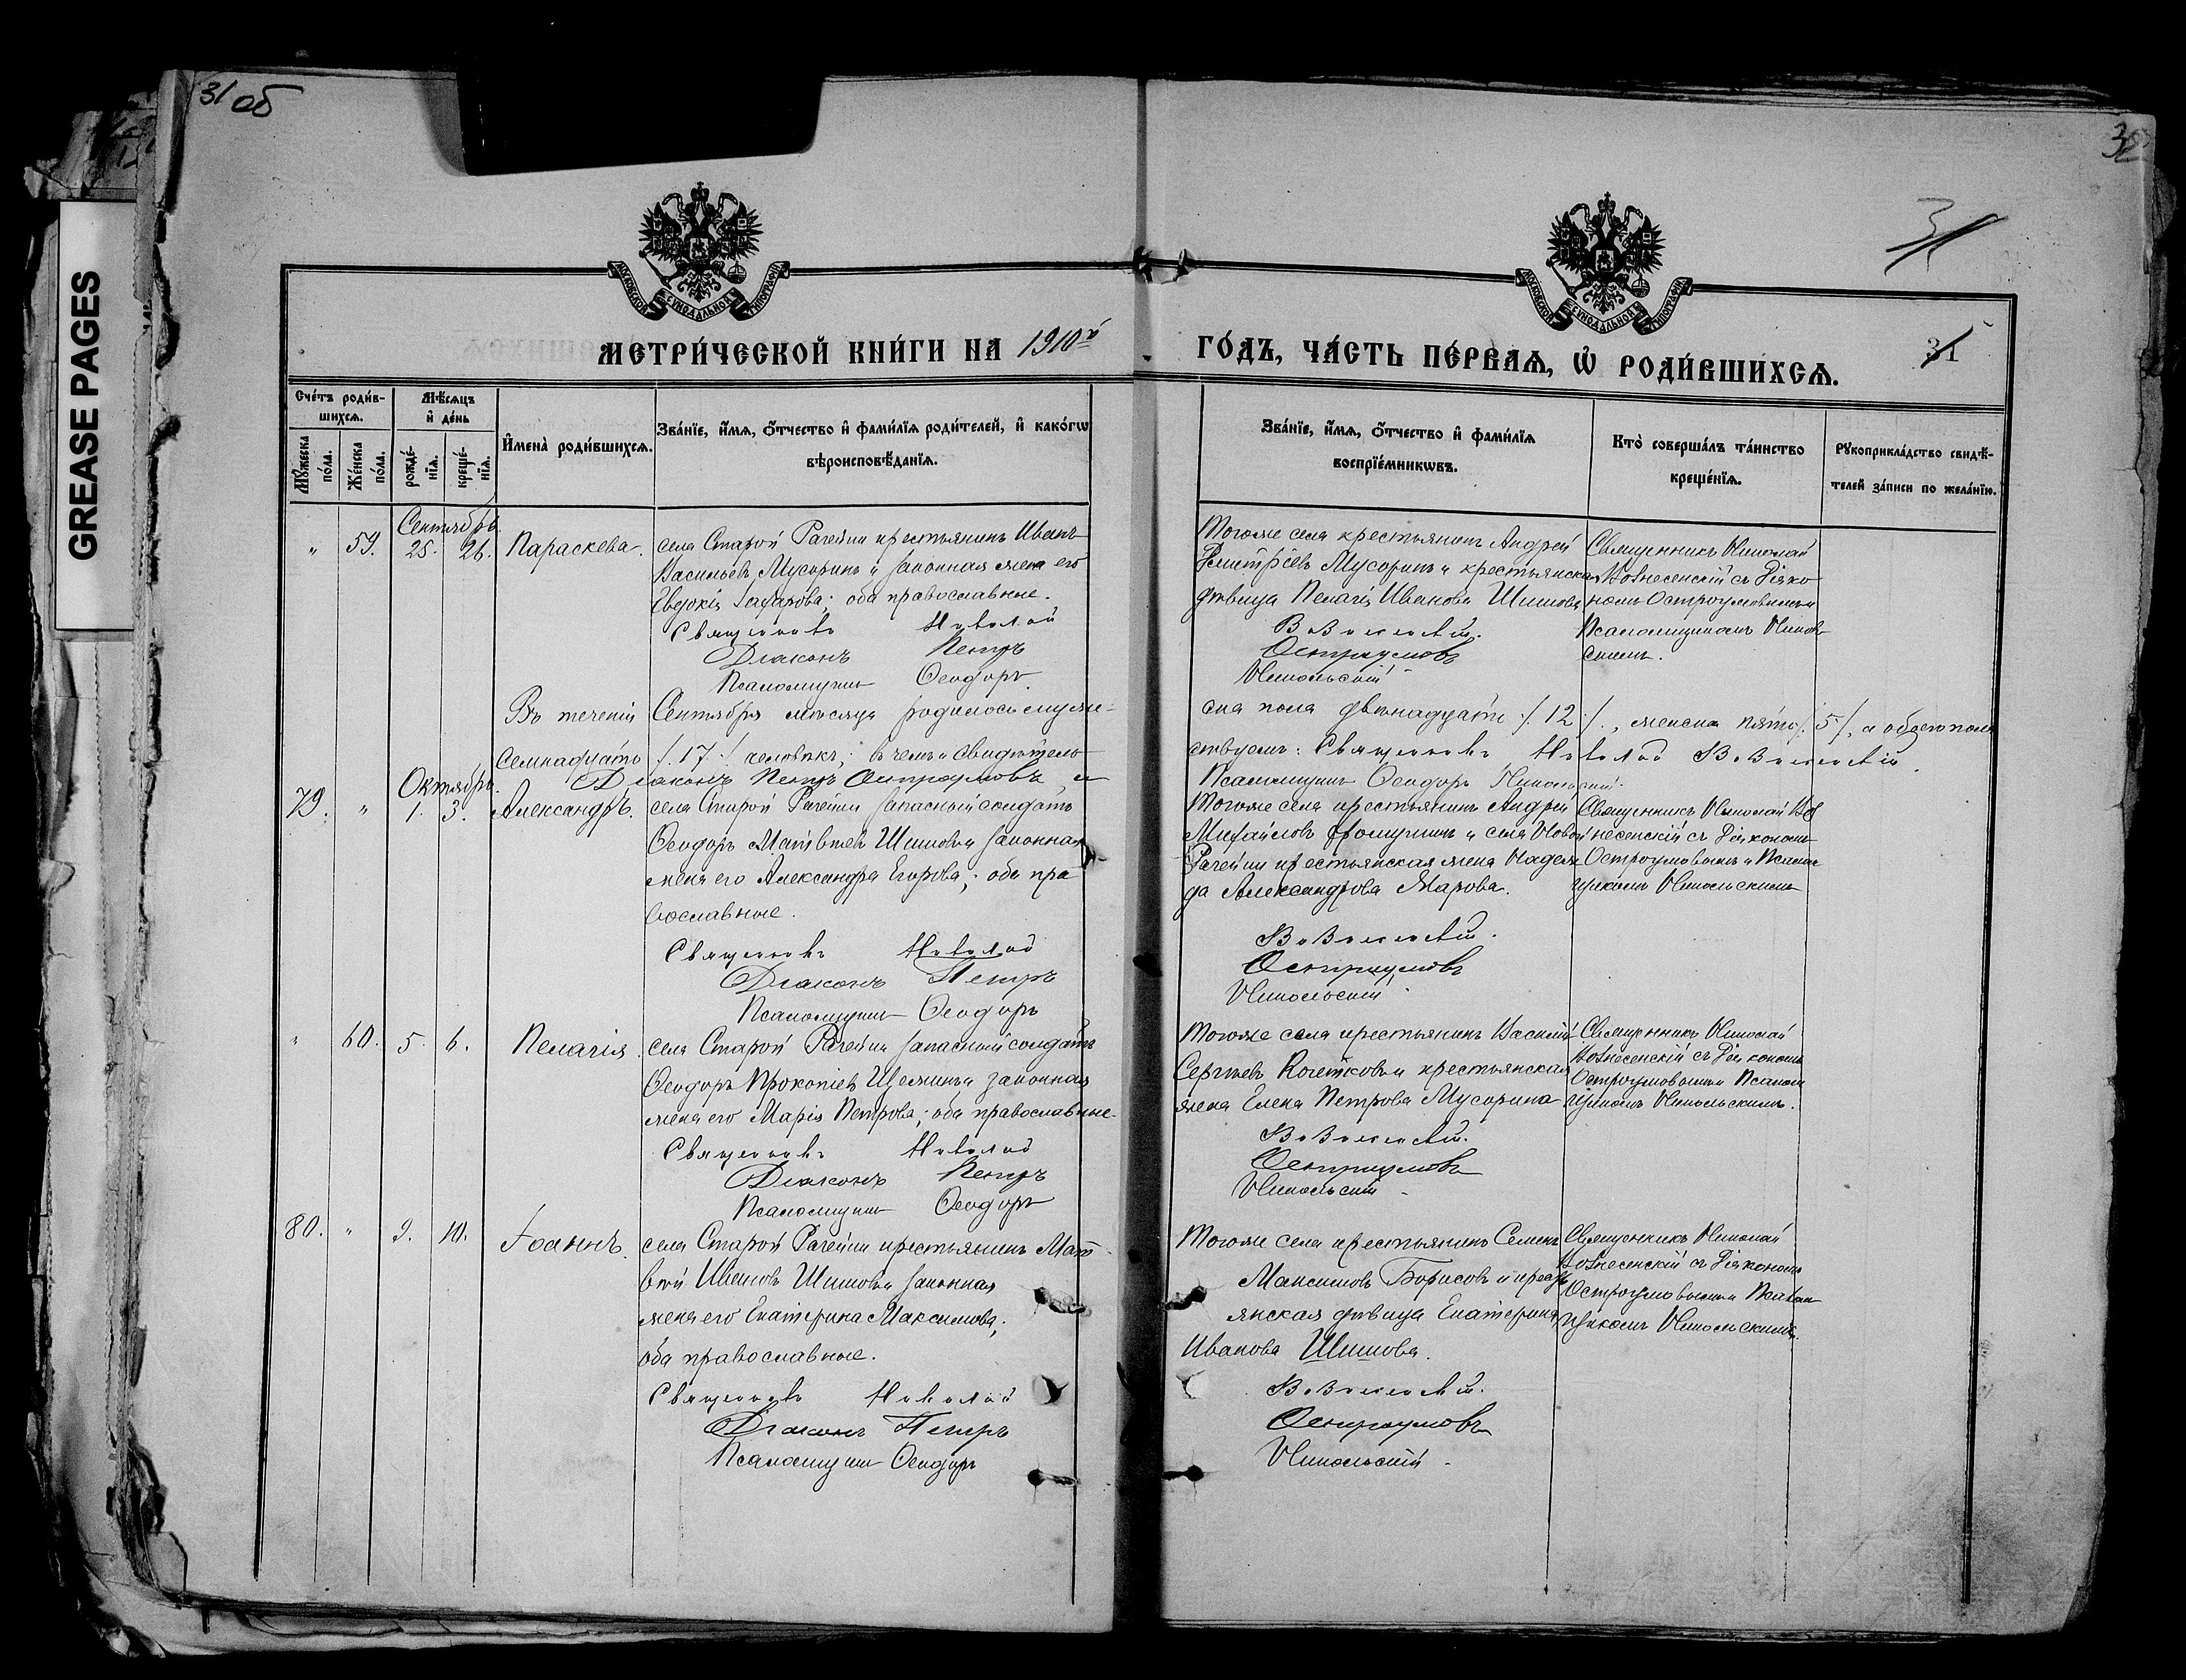 31 об
32
31
GREASE PAGES
МОСКОВСКОЙ СѴНОДАЛЬНОЙ ТИПОГРАФІИ
МОСКОВСКОЙ СѴНОДАЛЬНОЙ ТИПОГРАФІИ
МЕТРИ́ЧЕСКОЙ КНИ́ГИ НА 1910й
ГО́ДЪ, ЧА́СТЬ ПЕ́РВАѦ, Ѡ҆ РОДИ́ВШИХСѦ.
31
Сче́тъ роди́в-
шихсѧ.
Мѣ́сѧцъ
и҆ де́нь
Мꙋ́жеска по́ла.
Же́нска по́ла.
рожде́-
нїѧ.
креще́-
нїѧ.
И҆мена̀ роди́вшихсѧ.
Зва́нїе, и҆́мѧ, ѻ҆́тчество и҆ фами́лїѧ роди́телей, и҆ како́гѡ
вѣроисповѣ́данїѧ.
Зва́нїе, и҆́мѧ, ѻ҆́тчество и҆ фами́лїѧ
воспрїе́мникѡвъ.
Кто̀ соверша́лъ та́инство
креще́нїѧ.
Рꙋкоприкла́дство свидѣ́-
телей за́писи по жела́нїю.
Сентябрь.
" 59. 25. 26. Параскева.
села Старой Рачейки крестьянинъ Иванъ
Васильевъ Мусоринъ и законная жена его
Евдокія Захарова; оба православные.
Священникъ Николай
Діаконъ Петръ
Псаломщикъ Ѳеодоръ
Тогоже села крестьянинъ Андрей
Димитріевъ Мусоринъ и крестьянская
дѣвица Пелагія Иванова Шишова
Вознесенскій.
Остроумовъ
Никольскій
Священникъ Николай
Вознесенскій съ Діако
номъ Остроумовымъ и
Псаломщикомъ Николь
скимъ.
Въ теченіи Сентября мѣсяца родилось мужe-
ска пола двѣнадцать /.12./., женска пять /.5/, а обоего пола
семнадцать /.17./ человѣкъ; въ чемъ и свидѣтель
ствуемъ: Священникъ Николай Вознесенскій
Діаконъ Петръ Остроумовъ и
Псаломщикъ Ѳеодоръ Никольскій.
Октябрь.
79. " 1. 3. Александръ.
села Старой Рачейки запасный солдатъ
Ѳеодоръ Матвѣевъ Шишовъ и законная
жена его Александра Егорова; оба пра
вославные.
Священникъ Николай
Діаконъ Петръ
Псаломщикъ Ѳеодоръ
Тогоже села крестьянинъ Андрей
Михайловъ Фомушинъ и села Новой
Рачейки крестьянская жена Надеж
да Александрова Марова.
Вознесенскій.
Остроумовъ
Никольскій
Священникъ Николай Воз
несенскій съ Діакономъ
Остроумовымъ и Псалом
щикомъ Никольскимъ
" 60. 5. 6. Пелагія.
села Старой Рачейки запасный солдатъ
Ѳеодоръ Прокопіевъ Щелинъ и законная
жена его Марія Петрова; оба православные.
Священникъ Николай
Діаконъ Петръ
Псаломщикъ Ѳеодоръ
Тогоже села крестьянинъ Василій
Сергѣевъ Кочетковъ и крестьянская
жена Елена Петрова Мусорина
Вознесенскій.
Остроумовъ
Никольскій
Священникъ Николай
Вознесенскій съ Діакономъ
Остроумовымъ и Псалом
щикомъ Никольскимъ.
80. " 9. 10. Іоаннъ.
села Старой Рачейки крестьянинъ Мат
вѣй Ивановъ Шишовъ и законная
жена его Екатерина Максимова;
оба православные.
Священникъ Николай
Діаконъ Петръ
Псаломщикъ Ѳеодоръ
Тогоже села крестьянинъ Семенъ
Максимовъ Борисовъ и кресть
янская дѣвица Екатерина
Иванова Шишова.
Вознесенскій.
Остроумовъ
Никольскій
Священникъ Николай
Вознесенскій съ Діакономъ
Остроумовымъ и Псалом
щикомъ Никольскимъ.